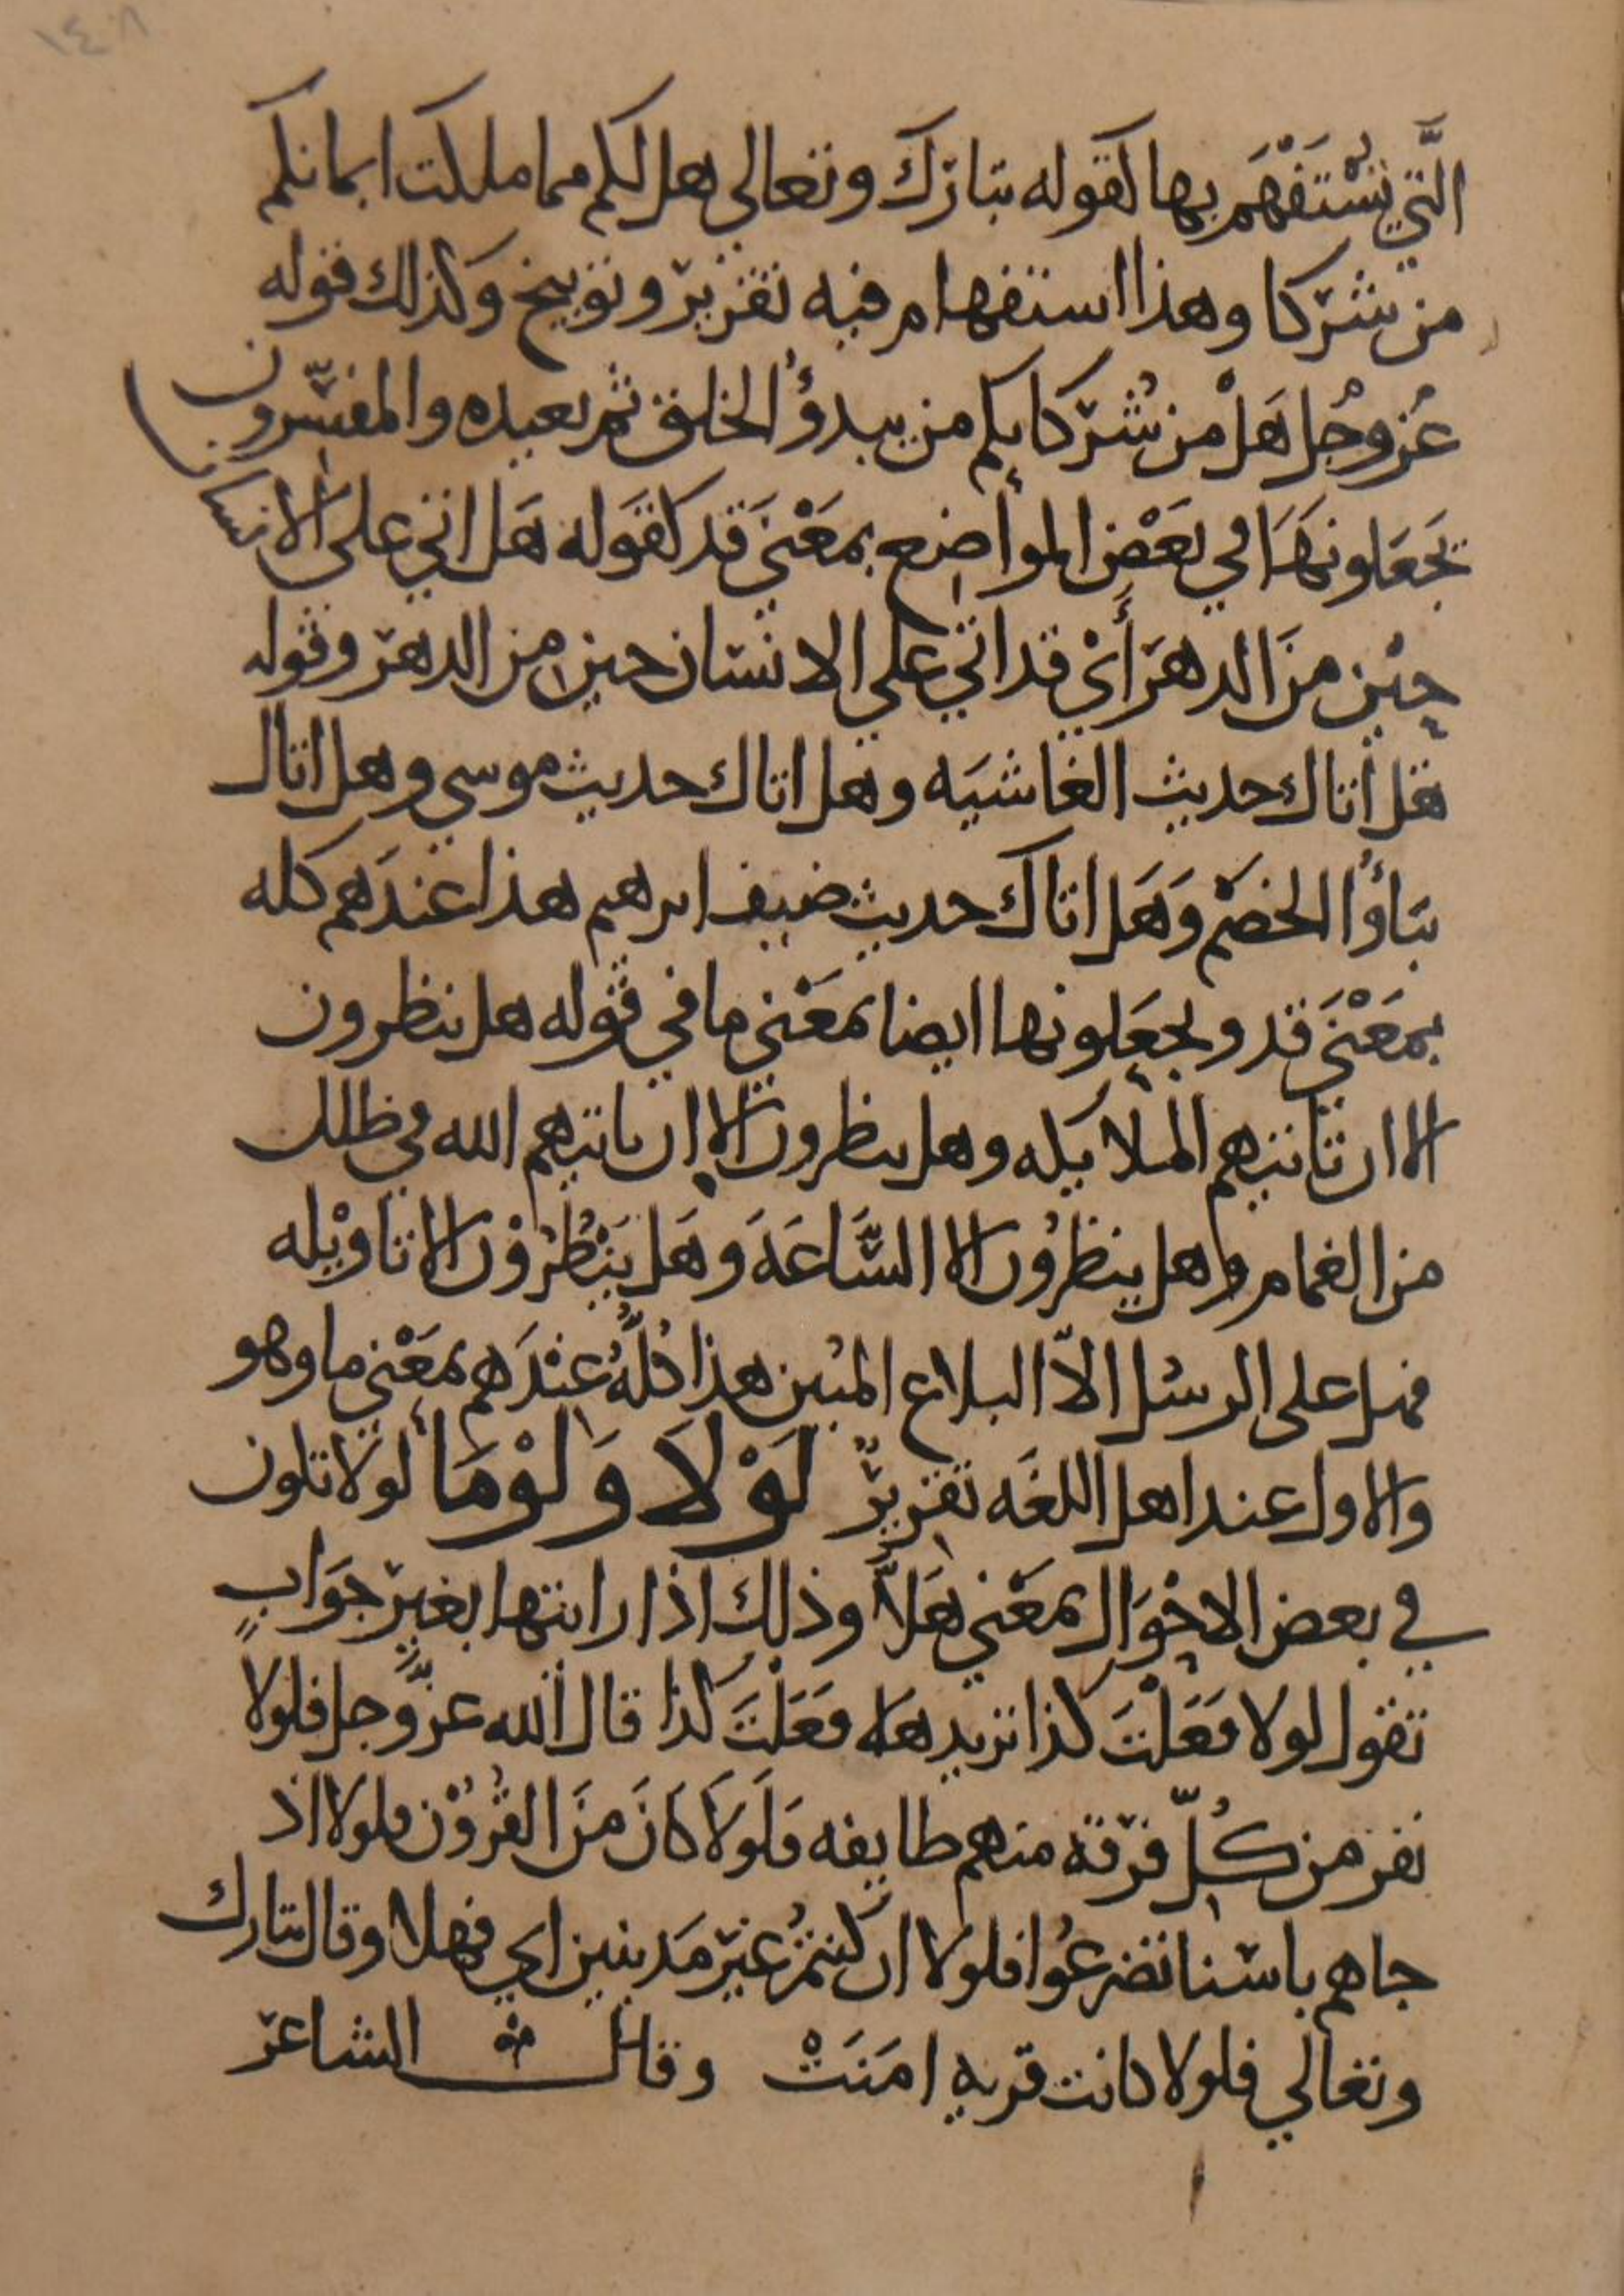 ١٤٨
الَّتي يُسْتَفْهَم بها كقوله تبارك وتعالى هل لكم مما ملكت ايمانكم
من شركا وهذا استفهام فيه تقرير وتوبيخ وكذلك قوله
عز وجل هَلْ من شُركايكم من يبدؤُ الخلق ثم يعيده والمفسّرون
يَجعَلونهَا في بَعْضِ المواضع بمَعْنَى قَد كقَوله هَل اتى على الانسان
حِيْن منَ الدهر أيْ قد اتى على الانسان حين من الدهر وقوله
هل أتاك حديث الغاشيَه وهل اتاك حديث موسى وهل اتاك
نبَأؤُا الخصْم وَهَل اتاك حديث ضيف ابرهيم هذا عندَهم كله
بمَعْنَى قد ويجعَلونها ايضا بمَعْنى ما في قوله هل ينظرون
الا ان تاتيهم الملايكه وهل ينظرون الا ان ياتيهم الله في ظلل
من الغمام وهل ينظرُون الا السَّاعَةَ وهَل يَنْظُرُوْن الا تاوْيله
فهل على الرسل الاّ البلاغ المبين هذا كلُّهُ عنْدَهم بمَعْنى ما وهو
والاول عند اهل اللغَه تقريرٌ لَوْلَا وَلَوْمَا لولا تكون
في بعض الاحْوَال بمَعْنى هَلاَّ وذلك اذا رايتها بغير جوَابٍ
تقول لولا فعَلْتَ كذا تريد هَلا فعَلْتَ كذا قال الله عزَّ وجل فلولا
نفر من كُلّ فرْقة منهم طايفه فلَولَا كَانَ منَ القُرُوْن فلولا اذ
جاهم باسنا تضرعُوا فلولا ان كنتمْ غيْر مَدينين اي فهلا وقال تبارك
وتعالى فلولا كانت قرية امَنَتْ وقال الشاعر